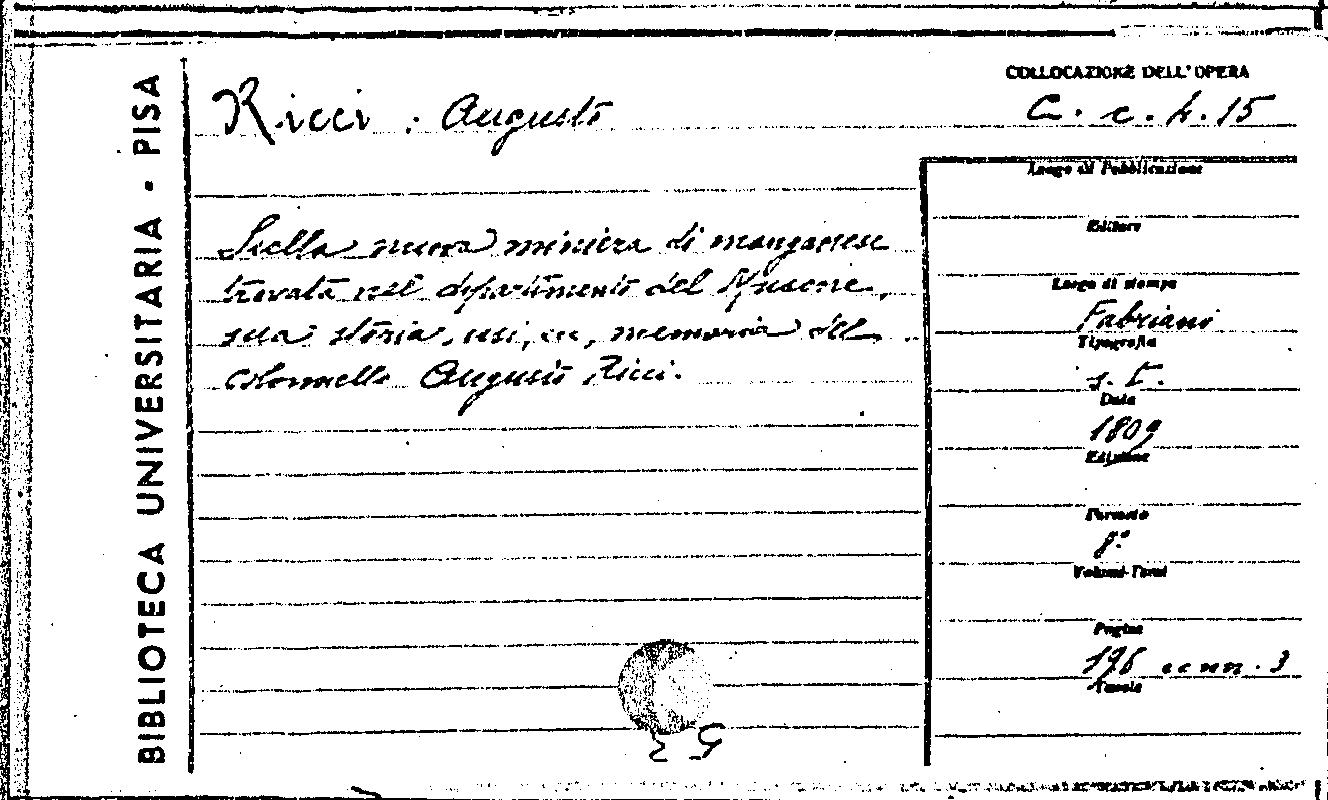 BIBLIOTECA UNIVERSITARIA - PISA
Ricci : Augusto
COLLOCAZIONE DELL'OPERA
C. c. 4. 15
Della nuova miniera di manganese
trovata nel dipartimento del Musone,
sua storia, usi, ec, memoria del
colonnello Augusto Ricci.
Luogo di Pubblicazione
Editore
Luogo di stampa
Fabriano
Tipografia
s. t.
Data
1809
Edizione
Formato
8°
Volumi-Tomi
Pagine
196 e c nn. 3
Tavole